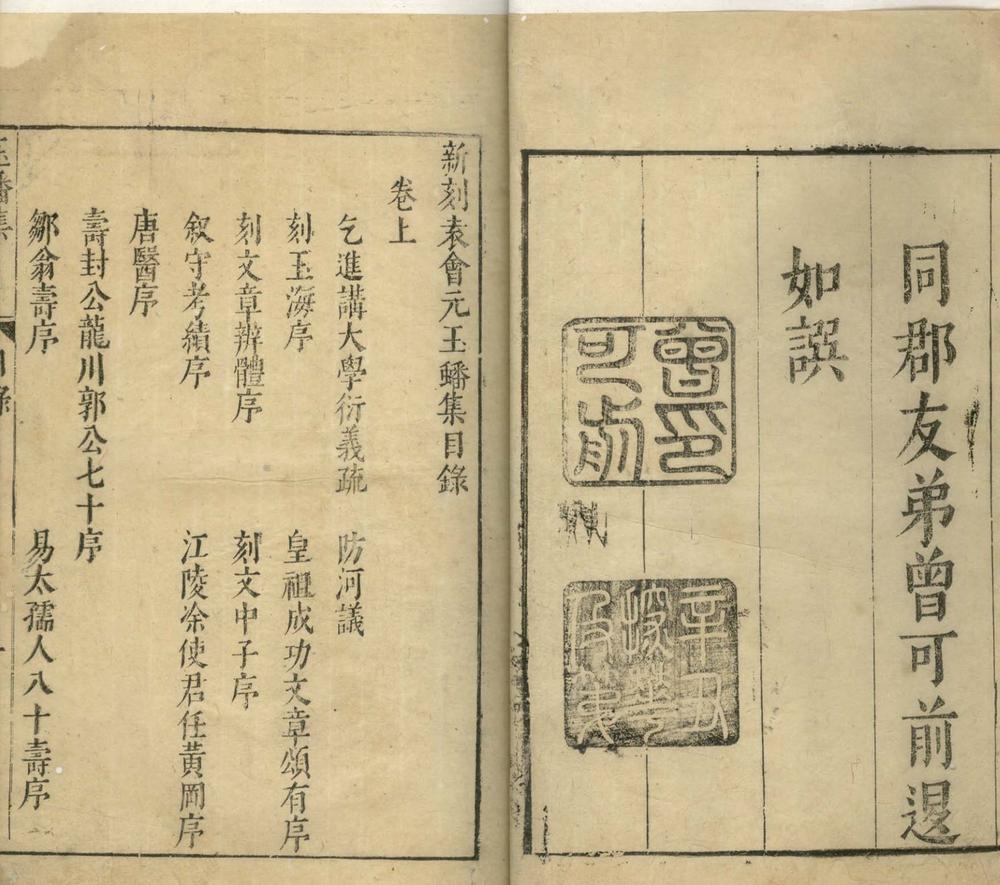 同郡友弟曾可前退
如譔
曾印
可前
辛丑
探華
及第
新刻袁會元玉蟠集目錄
卷上
乞進講大學衍義疏　防河議
刻玉海序　皇祖成功文章頌有序
刻文章辨體序　刻文中子序
叙守考績序　江陵凃使君任黃岡序
唐醫序
壽封公龍川郭公七十序
鄒翁壽序　易太孺人八十壽序
玉蟠集　目錄　一